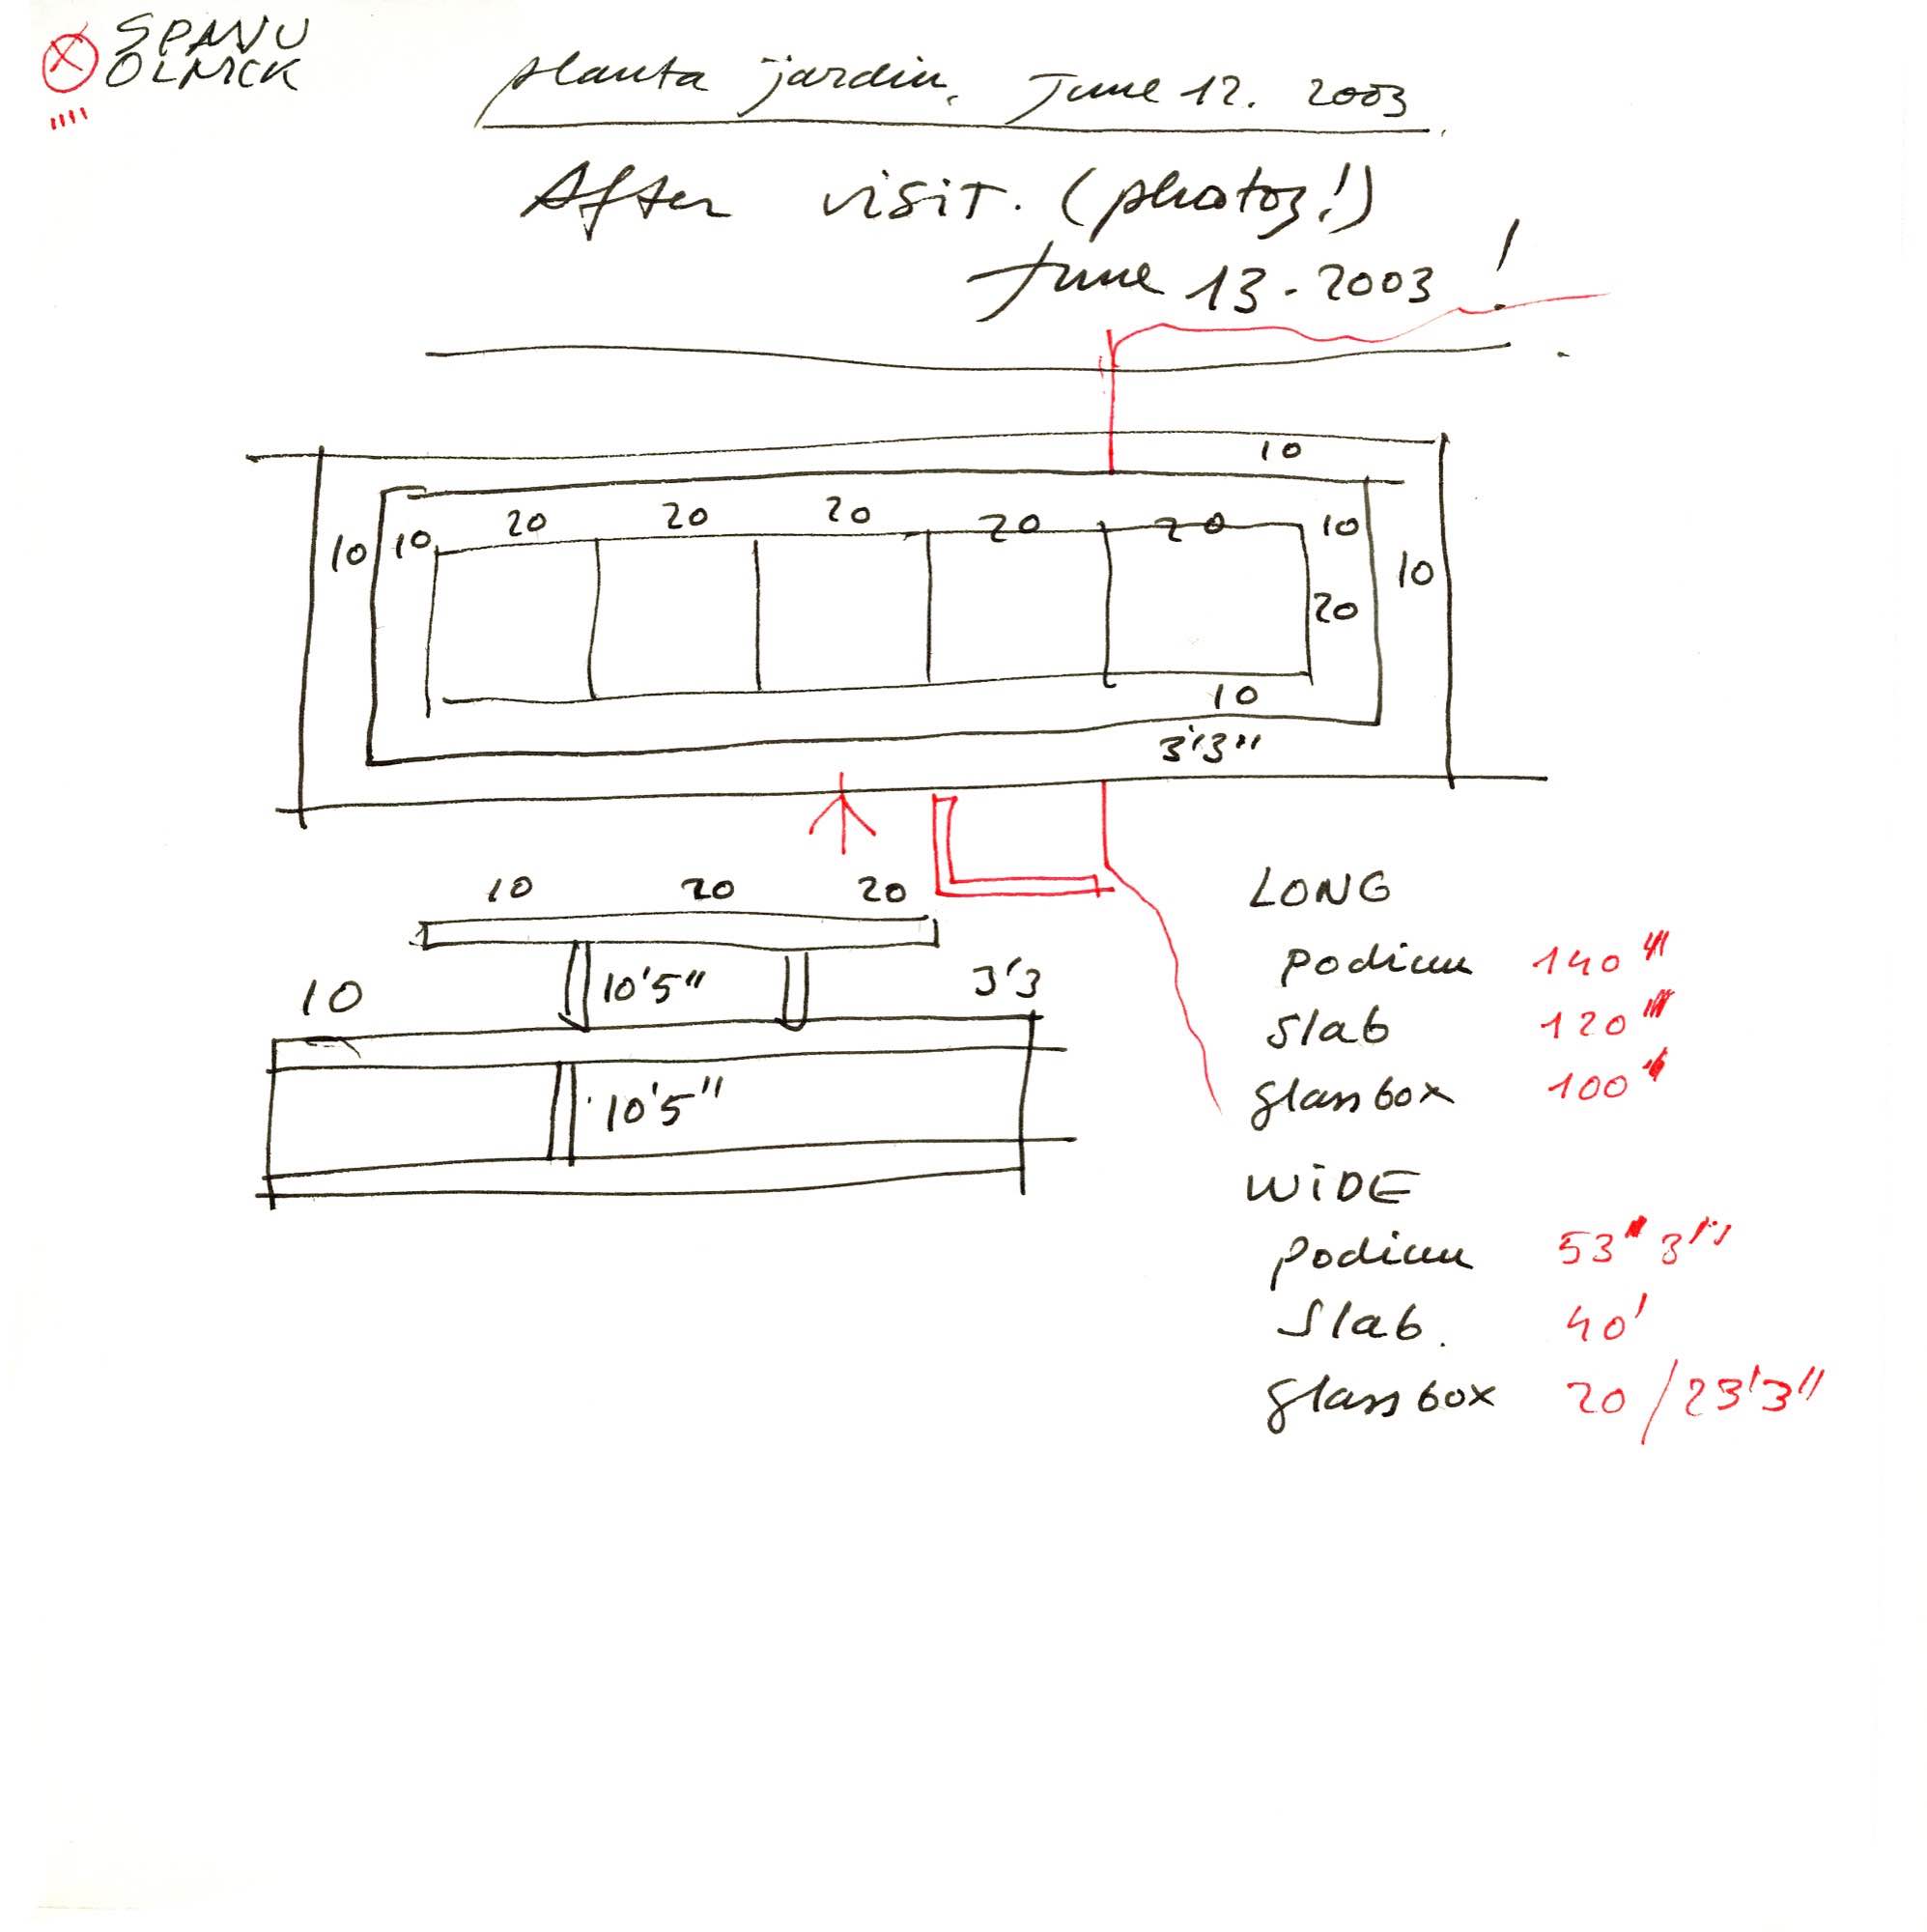 SPANU
OLNICK
planta jardin. June 12. 2003
After visit. (photos!)
June 13-2003 !
10
20 20 20 20 20
10 10 10 10
20
10
3'3"
10 20 20
10 10'5" 3'3
10'5"
LONG
podium 140"
slab 120"
glassbox 100"
WIDE
podium 53' 3"
slab. 40'
glassbox 20/23'3"